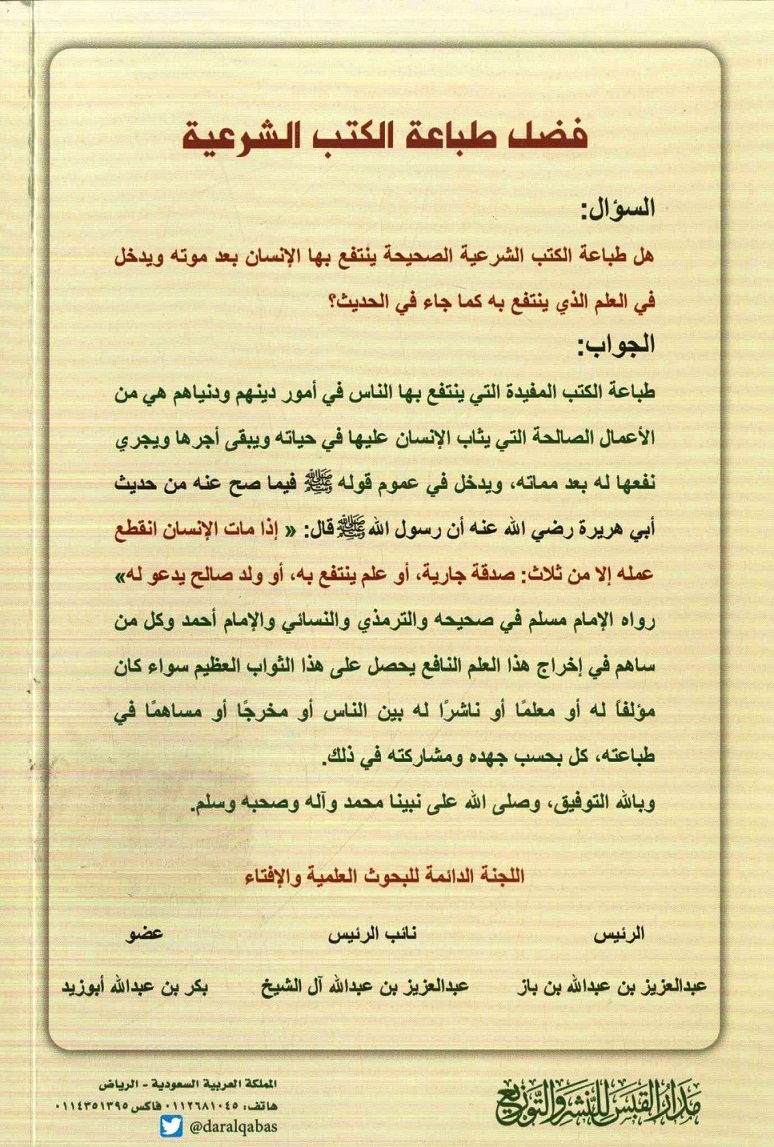 فضل طباعة الكتب الشرعية
السؤال:
هل طباعة الكتب الشرعية الصحيحة ينتفع بها الإنسان بعد موته ويدخل
في العلم الذي ينتفع به كما جاء في الحديث؟
الجواب:
طباعة الكتب المفيدة التي ينتفع بها الناس في أمور دينهم ودنياهم هي من
الأعمال الصالحة التي يثاب الإنسان عليها في حياته ويبقى أجرها ويجري
نفعها له بعد مماته، ويدخل في عموم قوله ﷺ فيما صح عنه من حديث
أبي هريرة رضي الله عنه أن رسول الله ﷺ قال: « إذا مات الإنسان انقطع
عمله إلا من ثلاث: صدقة جارية، أو علم ينتفع به، أو ولد صالح يدعو له»
رواه الإمام مسلم في صحيحه والترمذي والنسائي والإمام أحمد وكل من
ساهم في إخراج هذا العلم النافع يحصل على هذا الثواب العظيم سواء كان
مؤلفاً له أو معلمًا أو ناشرًا له بين الناس أو مخرجًا أو مساهمًا في
طباعته، كل بحسب جهده ومشاركته في ذلك.
وبالله التوفيق، وصلى الله على نبينا محمد وآله وصحبه وسلم.
اللجنة الدائمة للبحوث العلمية والإفتاء
الرئيس نائب الرئيس عضو
عبدالعزيز بن عبدالله بن باز عبدالعزيز بن عبدالله آل الشيخ بكر بن عبدالله أبوزيد
مدار القبس للنشر والتوزيع
المملكة العربية السعودية - الرياض
هاتف: ٠١١٢٦٨١٠٤٥ فاكس ٠١١٤٣٥١٣٩٥
@daralqabas